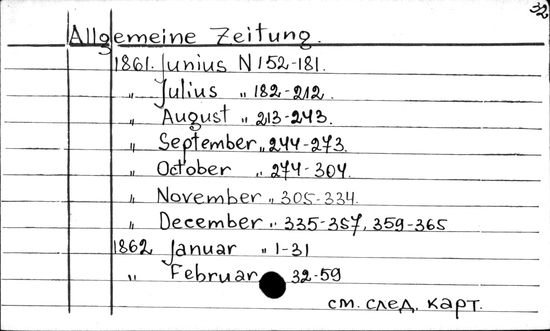 32
Allgemeine Zeitung.
1861. Junius N 152-181.
„ Julius „ 182-212.
„ August „ 213-243.
„ September „ 244-273.
„ October „ 274-304.
„ November „ 305-334.
„ December „ 335-357, 359-365
1862 Januar „ 1-31
„ Februar 32-59
см. след. карт.